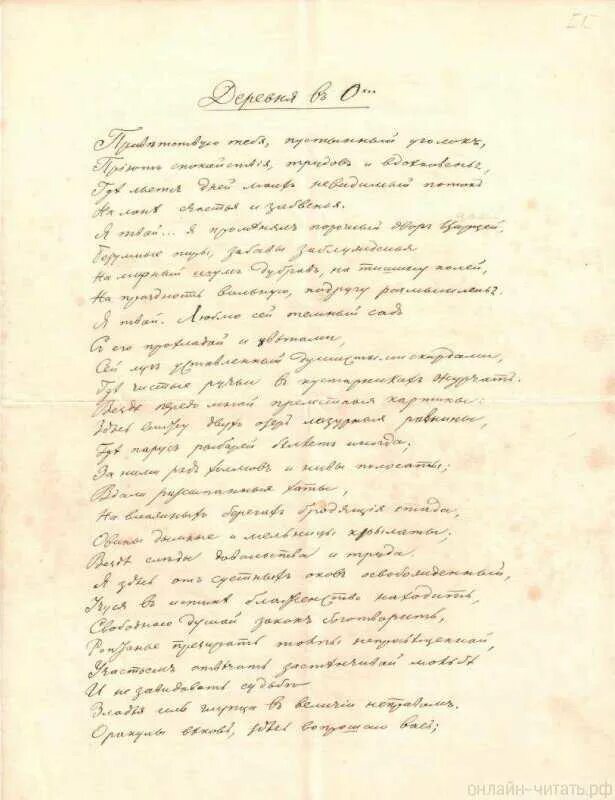 51
Деревня въ О***
Привѣтствую тебя, пустынный уголокъ,
Пріютъ спокойствія, трудовъ и вдохновенья,
Гдѣ льется дней моихъ невидимый потокъ
На лонѣ счастья и забвенья.
Я твой... я промѣнялъ порочный дворъ Цирцей,
Безумные пиры, забавы заблужденья
На мирный шумъ дубравъ, на тишину полей,
На праздность вольную, подругу размышленья.
Я твой. Люблю сей темный садъ
Съ его прохладой и цвѣтами,
Сей лугъ уставленный душистыми скирдами,
Гдѣ чистые ручьи въ кустарникахъ журчатъ.
Вездѣ передо мной прелестныя картины:
Здѣсь вижу двухъ озеръ лазурныя равнины,
Гдѣ парусъ рыбарей бѣлѣетъ иногда,
За ними рядъ холмовъ и нивы полосаты;
Вдали разсыпанныя хаты,
На влажныхъ берегахъ бродящія стада,
Овины дымные и мельницы крылаты;
Вездѣ слѣды довольства и труда.
Я здѣсь отъ суетныхъ оковъ освобожденный,
Учуся въ истинѣ блаженство находить,
Свободною душой законъ боготворить,
Роптанью презирать толпы непросвѣщенной,
Участьемъ отвѣчать застѣнчивой мольбѣ
И не завидовать судьбѣ
Злодѣя иль глупца въ величіи неправомъ.
Оракулы вѣковъ, здѣсь вопрошаю васъ;
онлайн-читать.рф